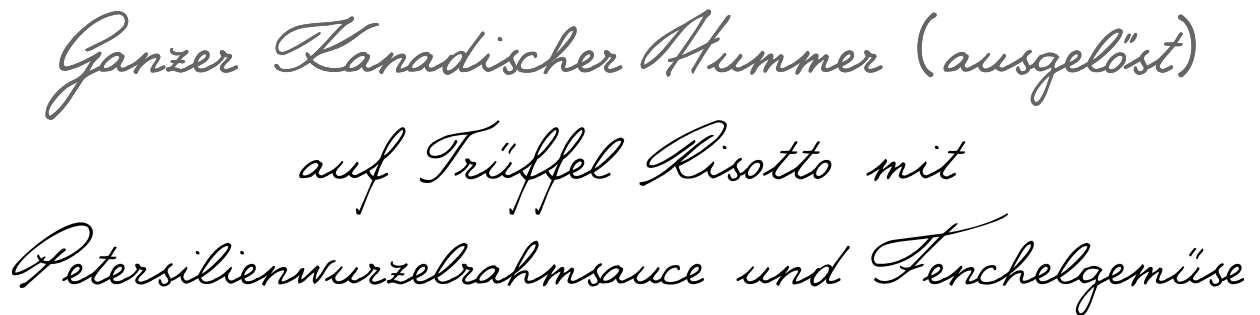 Ganzer Kanadischer Hummer (ausgelöst)
auf Trüffel Risotto mit
Petersilienwurzelrahmsauce und Fenchelgemüse